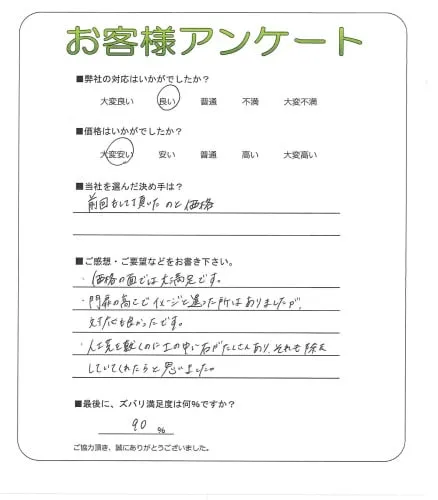 お客様アンケート
■弊社の対応はいかがでしたか？
大変良い 良い 普通 不満 大変不満
■価格はいかがでしたか？
大変安い 安い 普通 高い 大変高い
■当社を選んだ決め手は？
前回もして頂いたのと価格
■ご感想・ご要望などをお書き下さい。
・価格の面では大満足です。
・門扉の高さでイメージと違った所はありましたが、
も良かったです。
・人工芝を敷くのに土の中に石がたくさんあり、それも除去
していてくれたらと思いました。
■最後に、ズバリ満足度は何％ですか？
90 %
ご協力頂き、誠にありがとうございました。